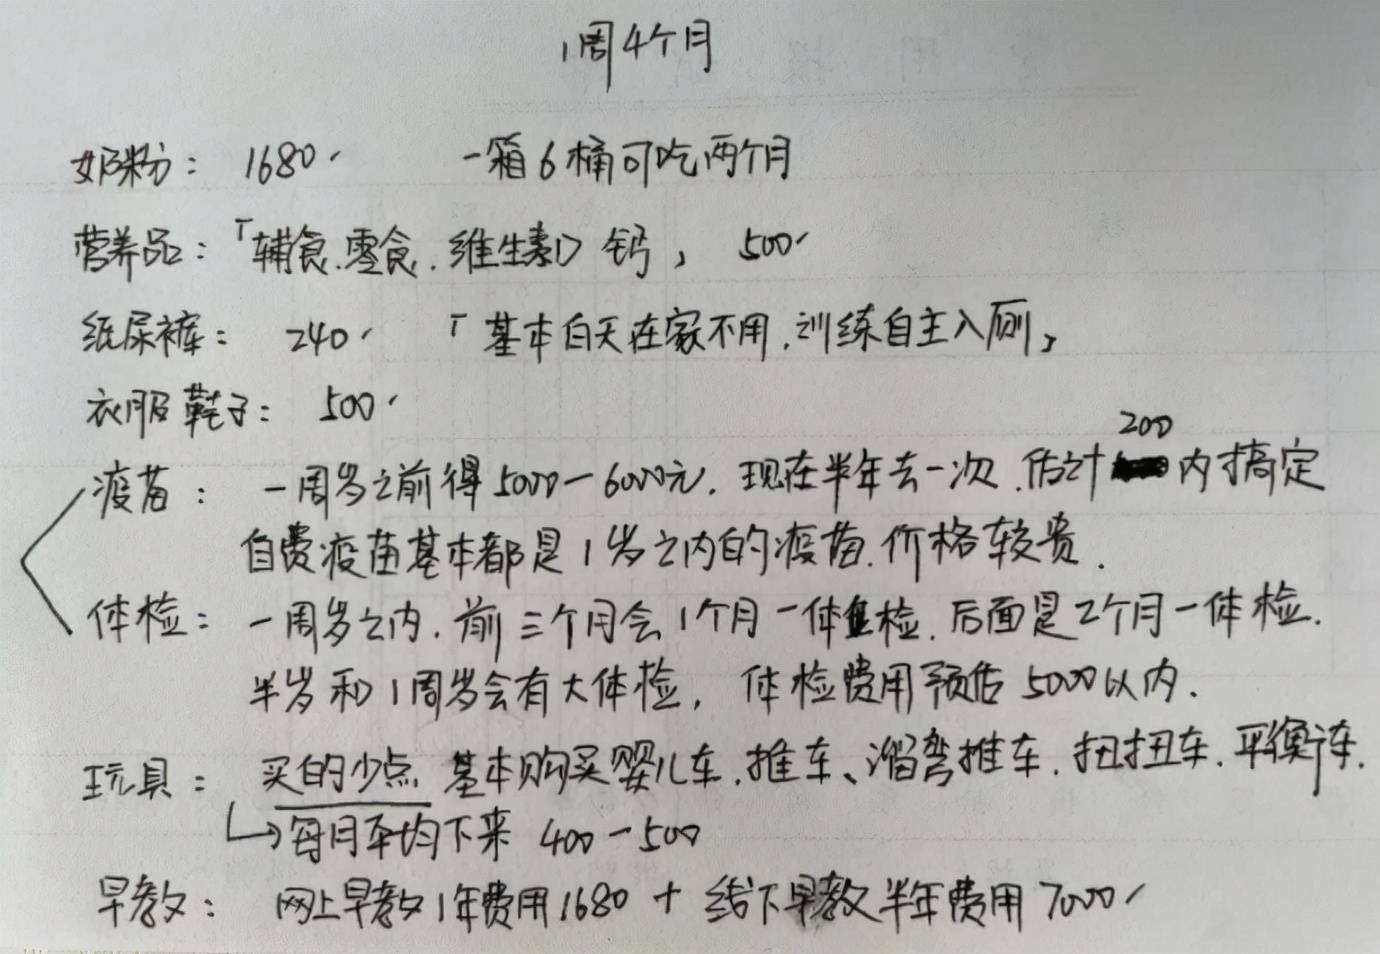 1周4个月
奶粉： 1680. 一箱6桶可吃两个月
营养品：「辅食.零食.维生素D 钙」 500.
纸尿裤： 240. 「基本白天在家不用,训练自主入厕」
衣服鞋子： 500.
200
疫苗： 一周岁之前得5000-6000元. 现在半年去一次.估计 内搞定
自费疫苗基本都是1岁之内的疫苗.价格较贵.
体检： 一周岁之内.前三个月会1个月一体检.后面是2个月一体检.
半岁和1周岁会有大体检, 体检费用预估5000以内.
玩具： 买的少点 基本购买婴儿车.推车、溜弯推车.扭扭车.平衡车.
→每月平均下来 400-500
早教： 网上早教1年费用1680 + 线下早教半年费用7000.